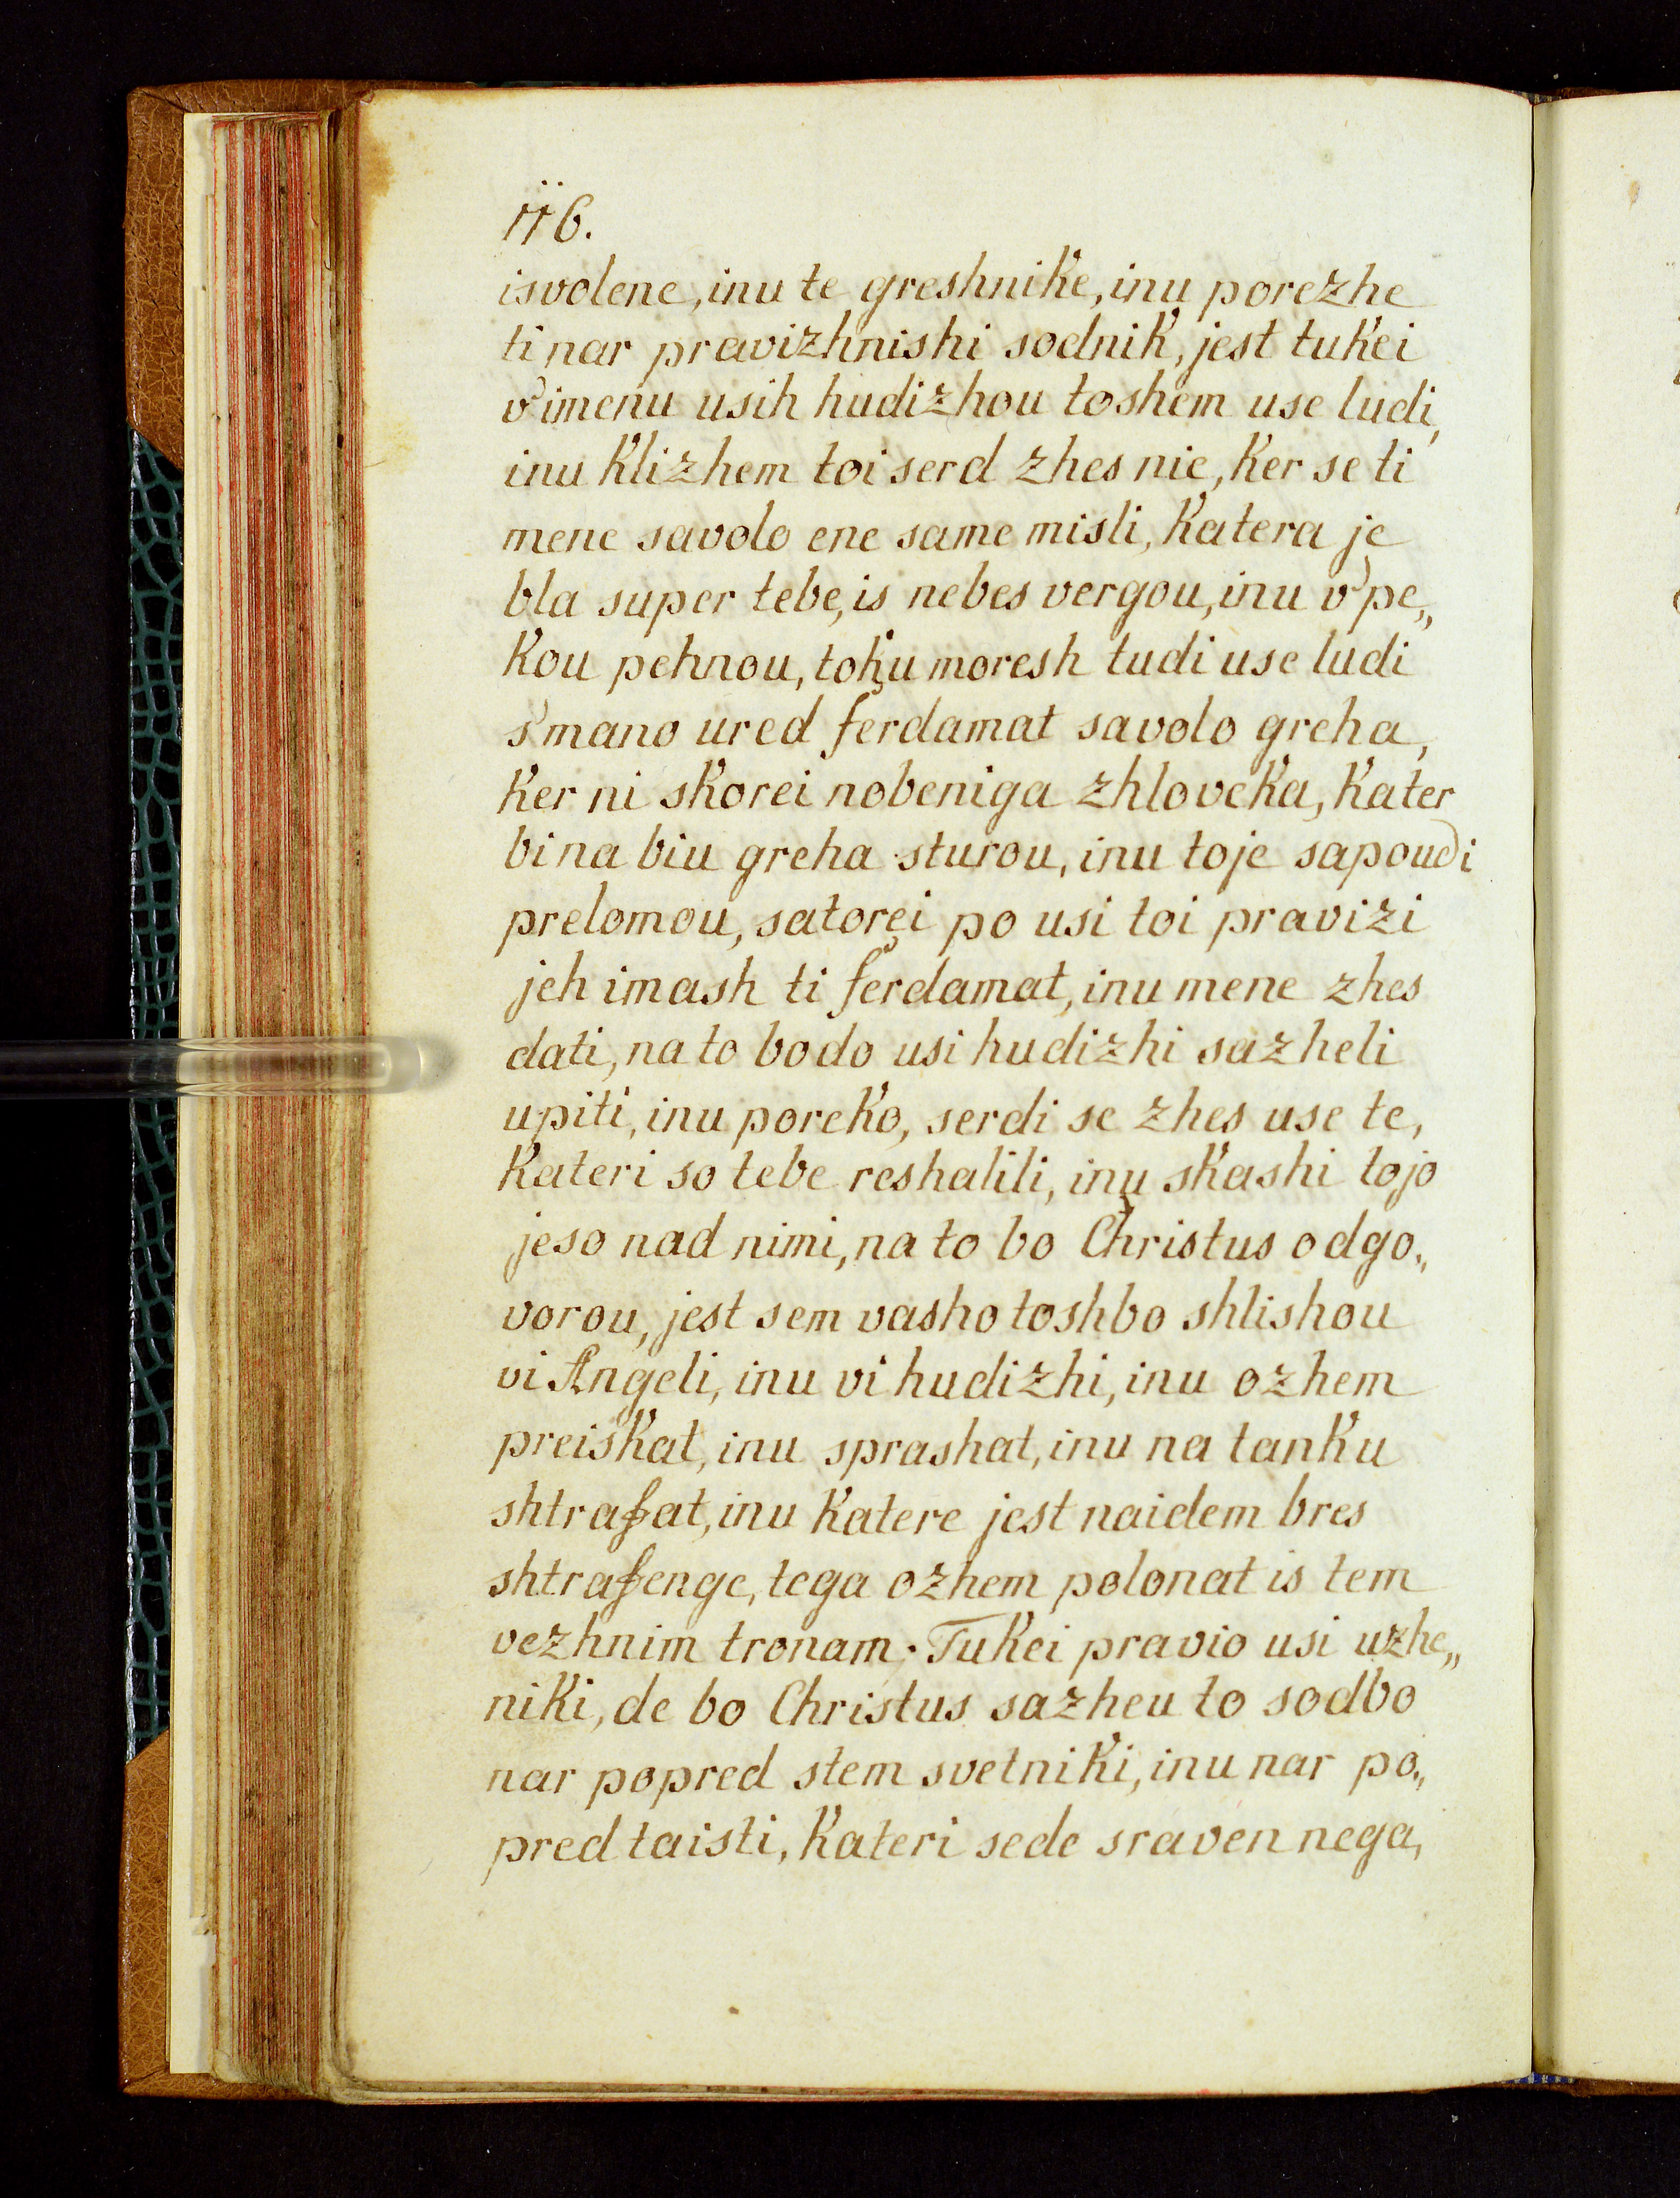 116.
isvolene, inu te greshnike, inu porezhe
ti nar pravizhnishi sodnik, jest tukei
v'imenu usih hudizhou toshem use ludi,
inu klizhem toi serd zhes nie, ker se ti
mene savolo ene same misli, katera je
bla super tebe, is nebes vergou, inu v'pe„
kou pehnou, toku moresh tudi use ludi
s'mano ured ferdamat savolo greha,
ker ni skorei nobeniga zhloveka, kater
bi na biu greha sturou, inu toje sapoudi
prelomou, satorei po usi toi pravizi
jeh imash ti ferdamat, inu mene zhes
dati, na to bodo usi hudizhi sazheli
upiti, inu poreko, serdi se zhes use te,
kateri so tebe reshalili, inu skashi tojo
jeso nad nimi, na to bo Christus odgo„
vorou, jest sem vasho toshbo shlishou
vi Angeli, inu vi hudizhi, inu ozhem
preiskat, inu sprashat, inu na tanku
shtrafat, inu katere jest naidem bres
shtrafenge, tega ozhem polonat is tem
vezhnim tronam. Tukei pravio usi uzhe„
niki, de bo Christus sazheu to sodbo
nar popred stem svetniki, inu nar po„
pred taisti, kateri sede sraven nega,